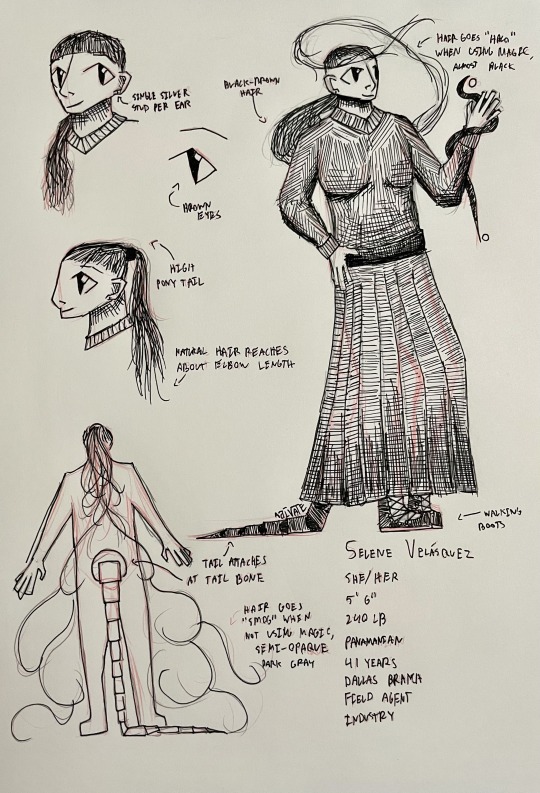 HAIR GOES "HALO"
WHEN USING MAGIC,
ALMOST BLACK
SINGLE SILVER
STUD PER EAR
BLACK-BROWN
HAIR
BROWN
EYES
HIGH
PONY TAIL
NATURAL HAIR REACHES
ABOUT ELBOW LENGTH
WALKING
BOOTS
TAIL ATTACHES
AT TAIL BONE
HAIR GOES
"SMOG" WHEN
NOT USING MAGIC,
SEMI-OPAQUE
DARK GRAY
SELENE VELÁSQUEZ
SHE/HER
5' 6"
240 LB
PANAMANIAN
41 YEARS
DALLAS BRANCH
FIELD AGENT
INDUSTRY